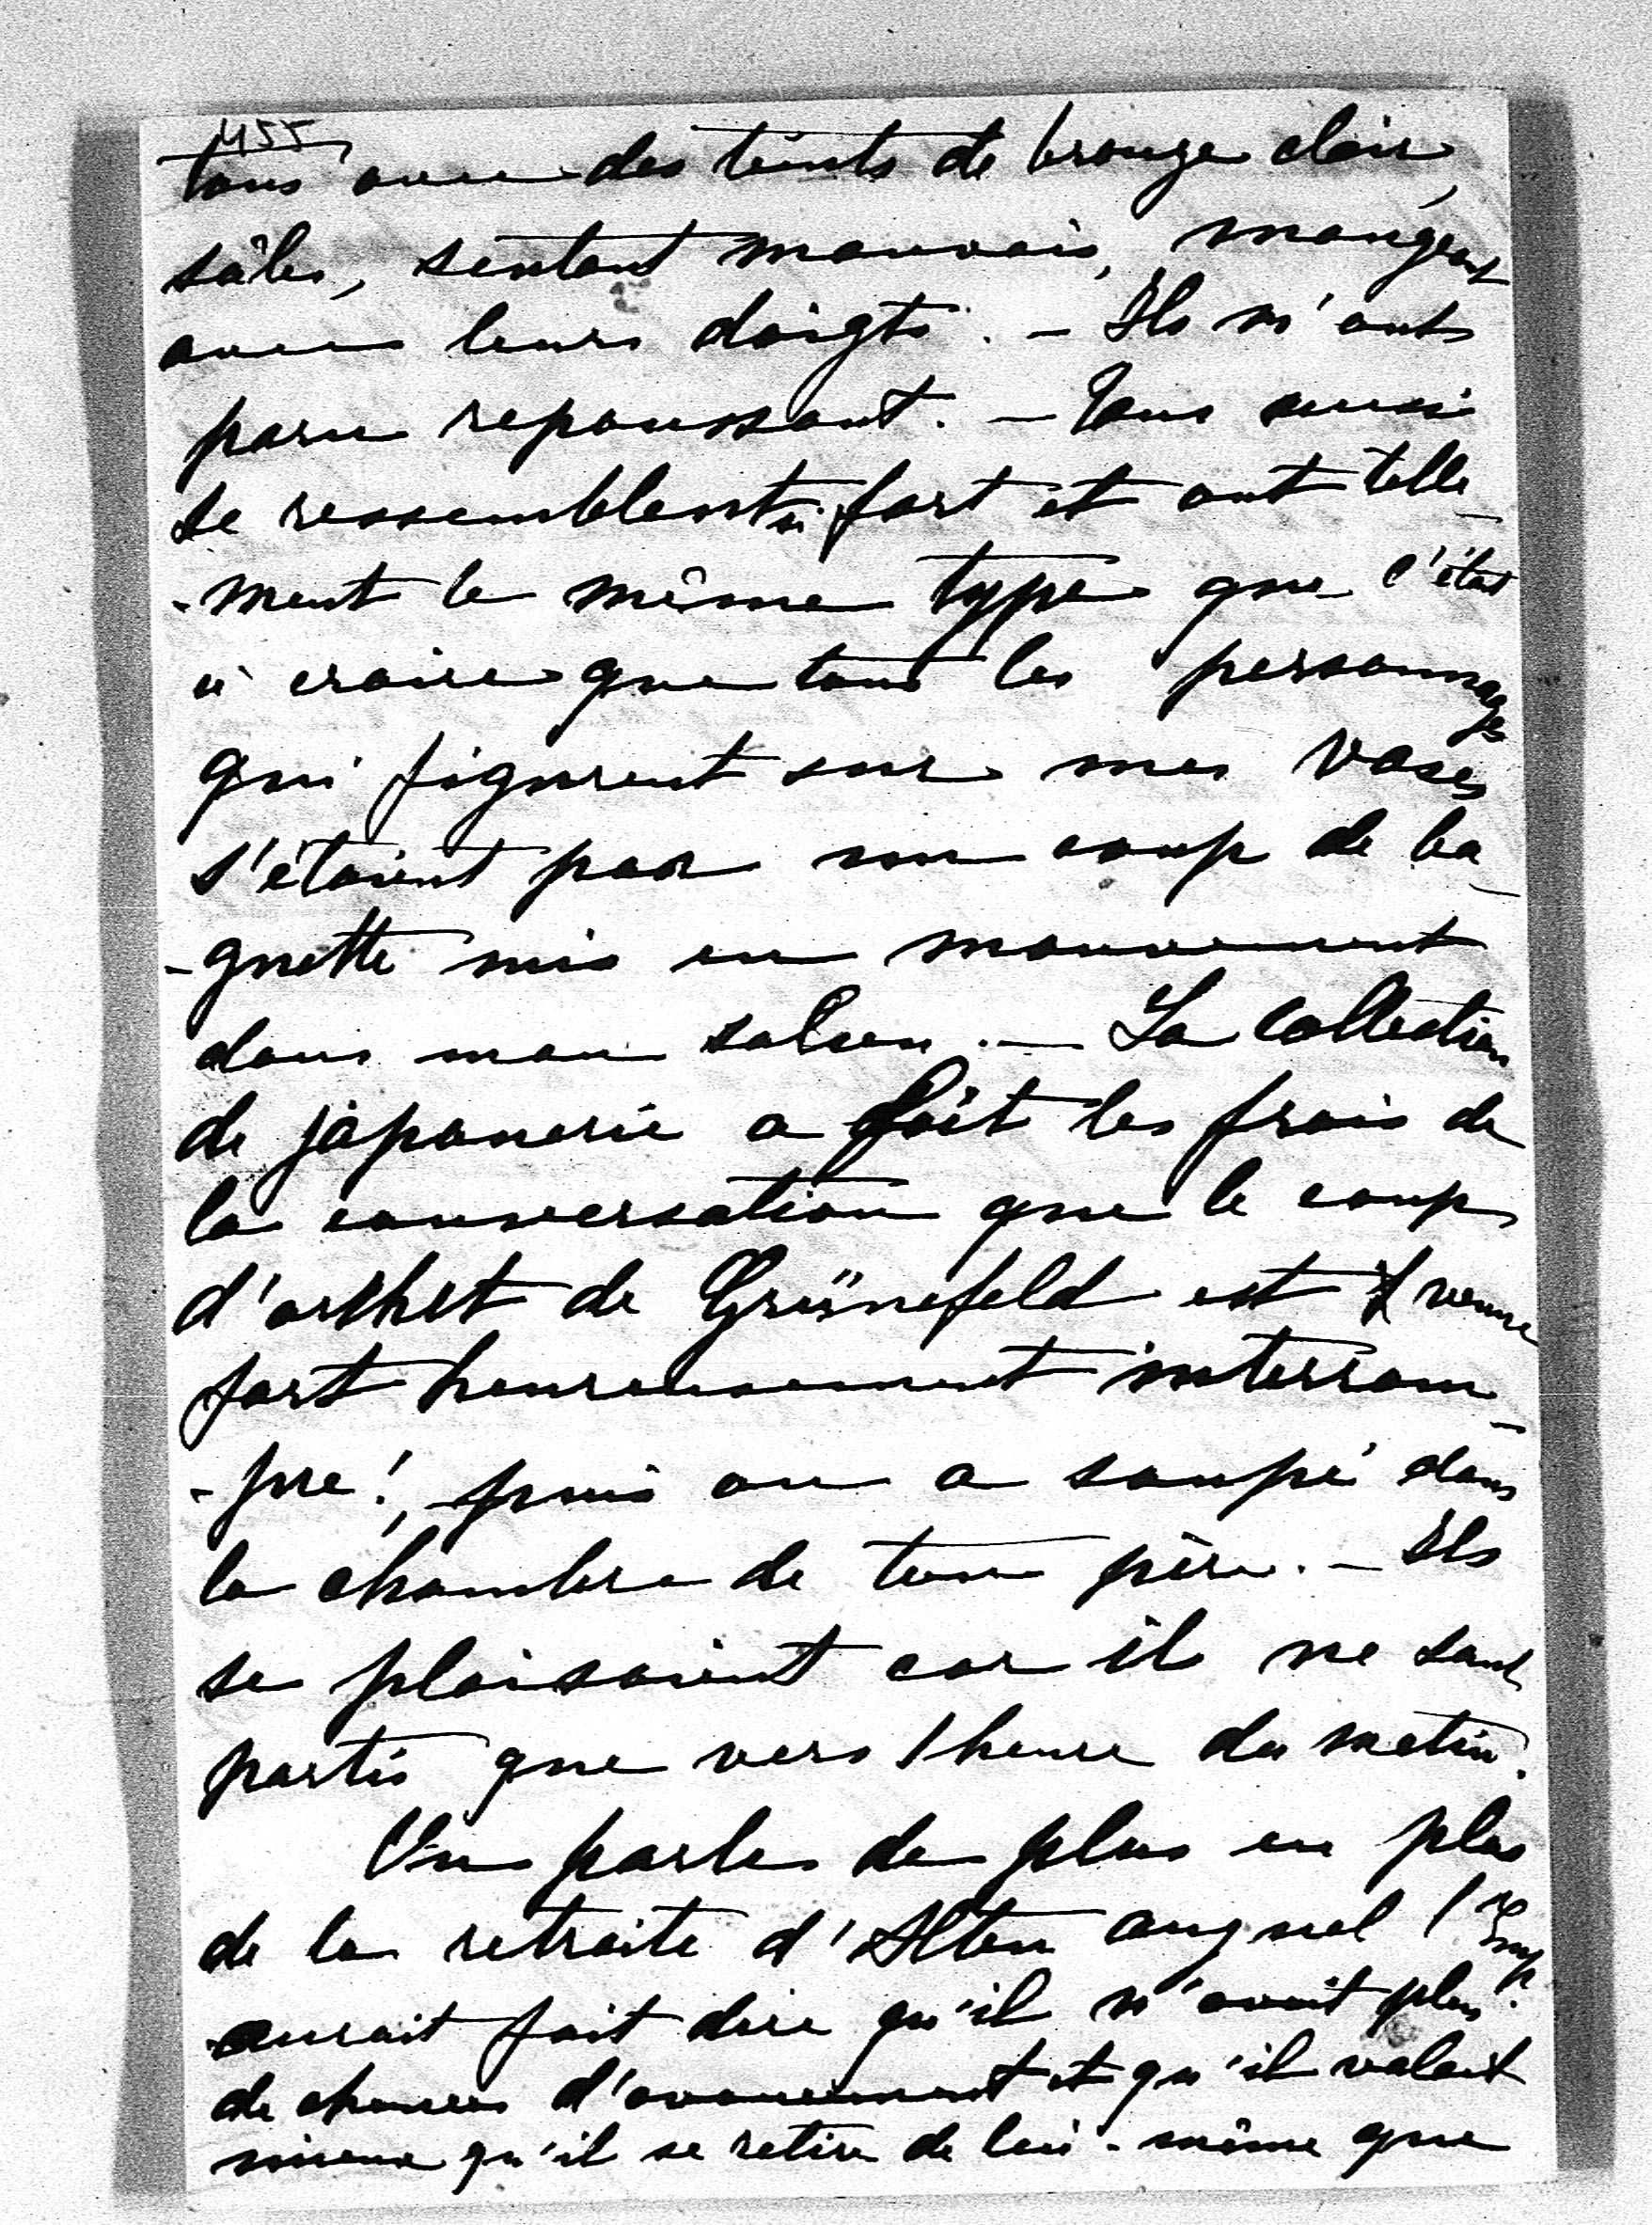 455
tous avec des teints de bronze clair,
sâles, sentant mauvais, mangeant
avec leurs doigts. – Ils m'ont
paru repoussant. – Tous aussi
se ressemblent si fort et ont telle-
-ment le même type que c'était
à croire que tous les personnages
qui figurent sur mes vases
s'étaient par un coup de ba-
-guette mis en mouvement
dans mon salon. – La collection
de japonerie a fait les frais de
la conversation que le coup
d'archet de Grünefeld est venu
fort heureusement interrom-
-pre!, puis on a soupé dans
la chambre de ton père. – Ils
se plaisaient car il ne sont
partis que vers 1 heure du matin.
On parle de plus en plus
de la retraite d'Alten auquel l'Emp.
aurait fait dire qu'il n'avait plus
de chances d'avancement et qu'il valait
mieux qu'il se retire de lui-même que